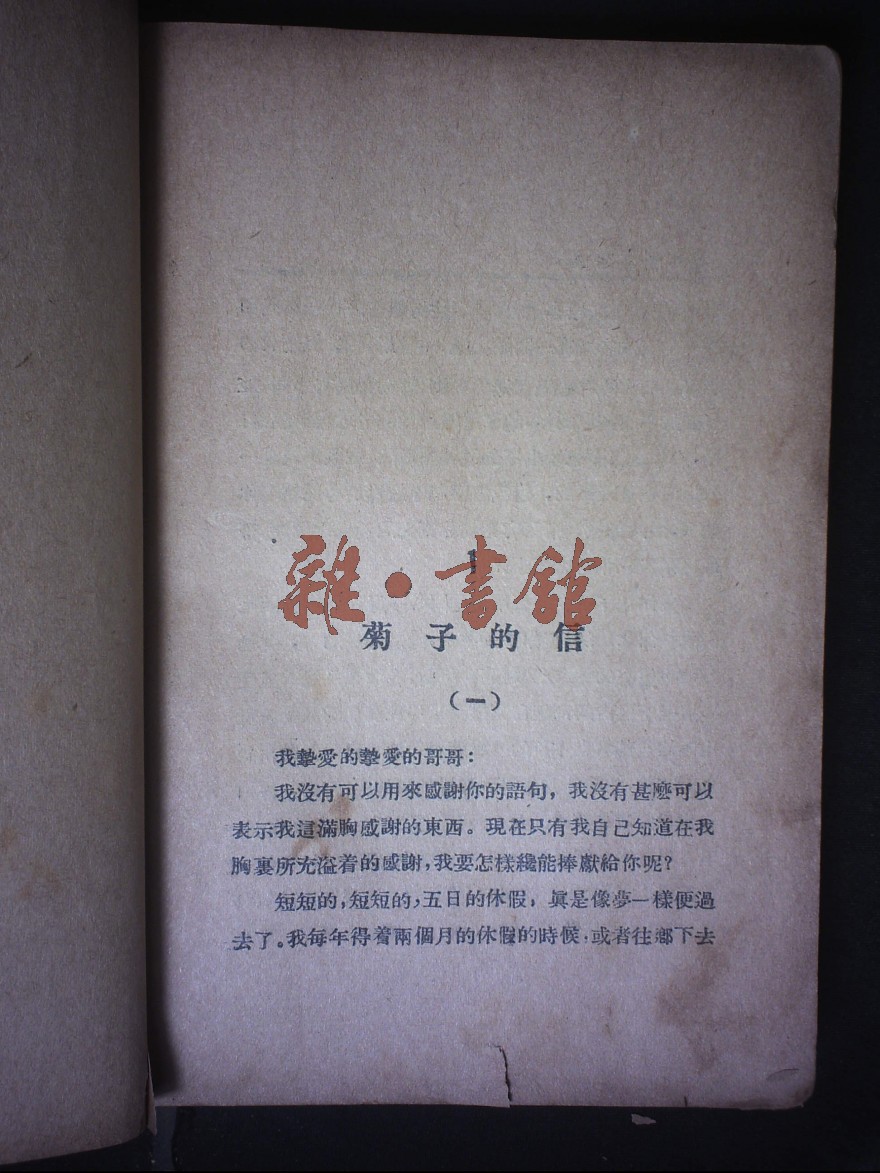 雜·書館
菊子的信
(一)
我摯愛的摯愛的哥哥:
我沒有可以用來感謝你的語句,我沒有甚麼可以
表示我這滿胸感謝的東西。現在只有我自己知道在我
胸裏所充溢着的感謝,我要怎樣纔能捧獻給你呢?
短短的,短短的,五日的休假,眞是像夢一樣便過
去了。我每年得着兩個月的休假的時候,或者往鄉下去